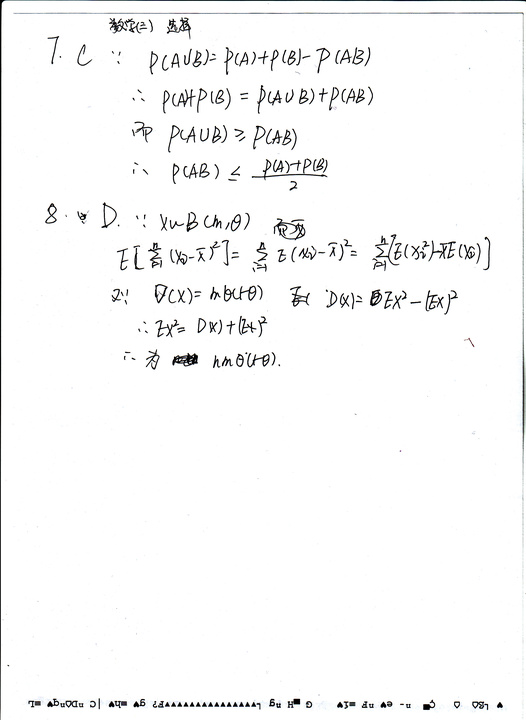 数学(三) 选择
7. C ∵ P(A∪B)=P(A)+P(B)-P(AB)
∴ P(A)+P(B) = P(A∪B)+P(AB)
而 P(A∪B) ≥ P(AB)
∴ P(AB) ≤ P(A)+P(B)/2
8. D. ∵ X~B(m,θ)
E[∑ⁿᵢ₌₁(Xᵢ-X̄)²] = ∑ⁿᵢ₌₁ E(Xᵢ-X̄)² = ∑ⁿᵢ₌₁[E(Xᵢ²)-X̄E(Xᵢ)]
又∵ D(X)=mθ(1-θ) D(X)=EX²-(EX)²
∴ EX² = D(X)+(EX)²
∴ 为 nmθ(1-θ).